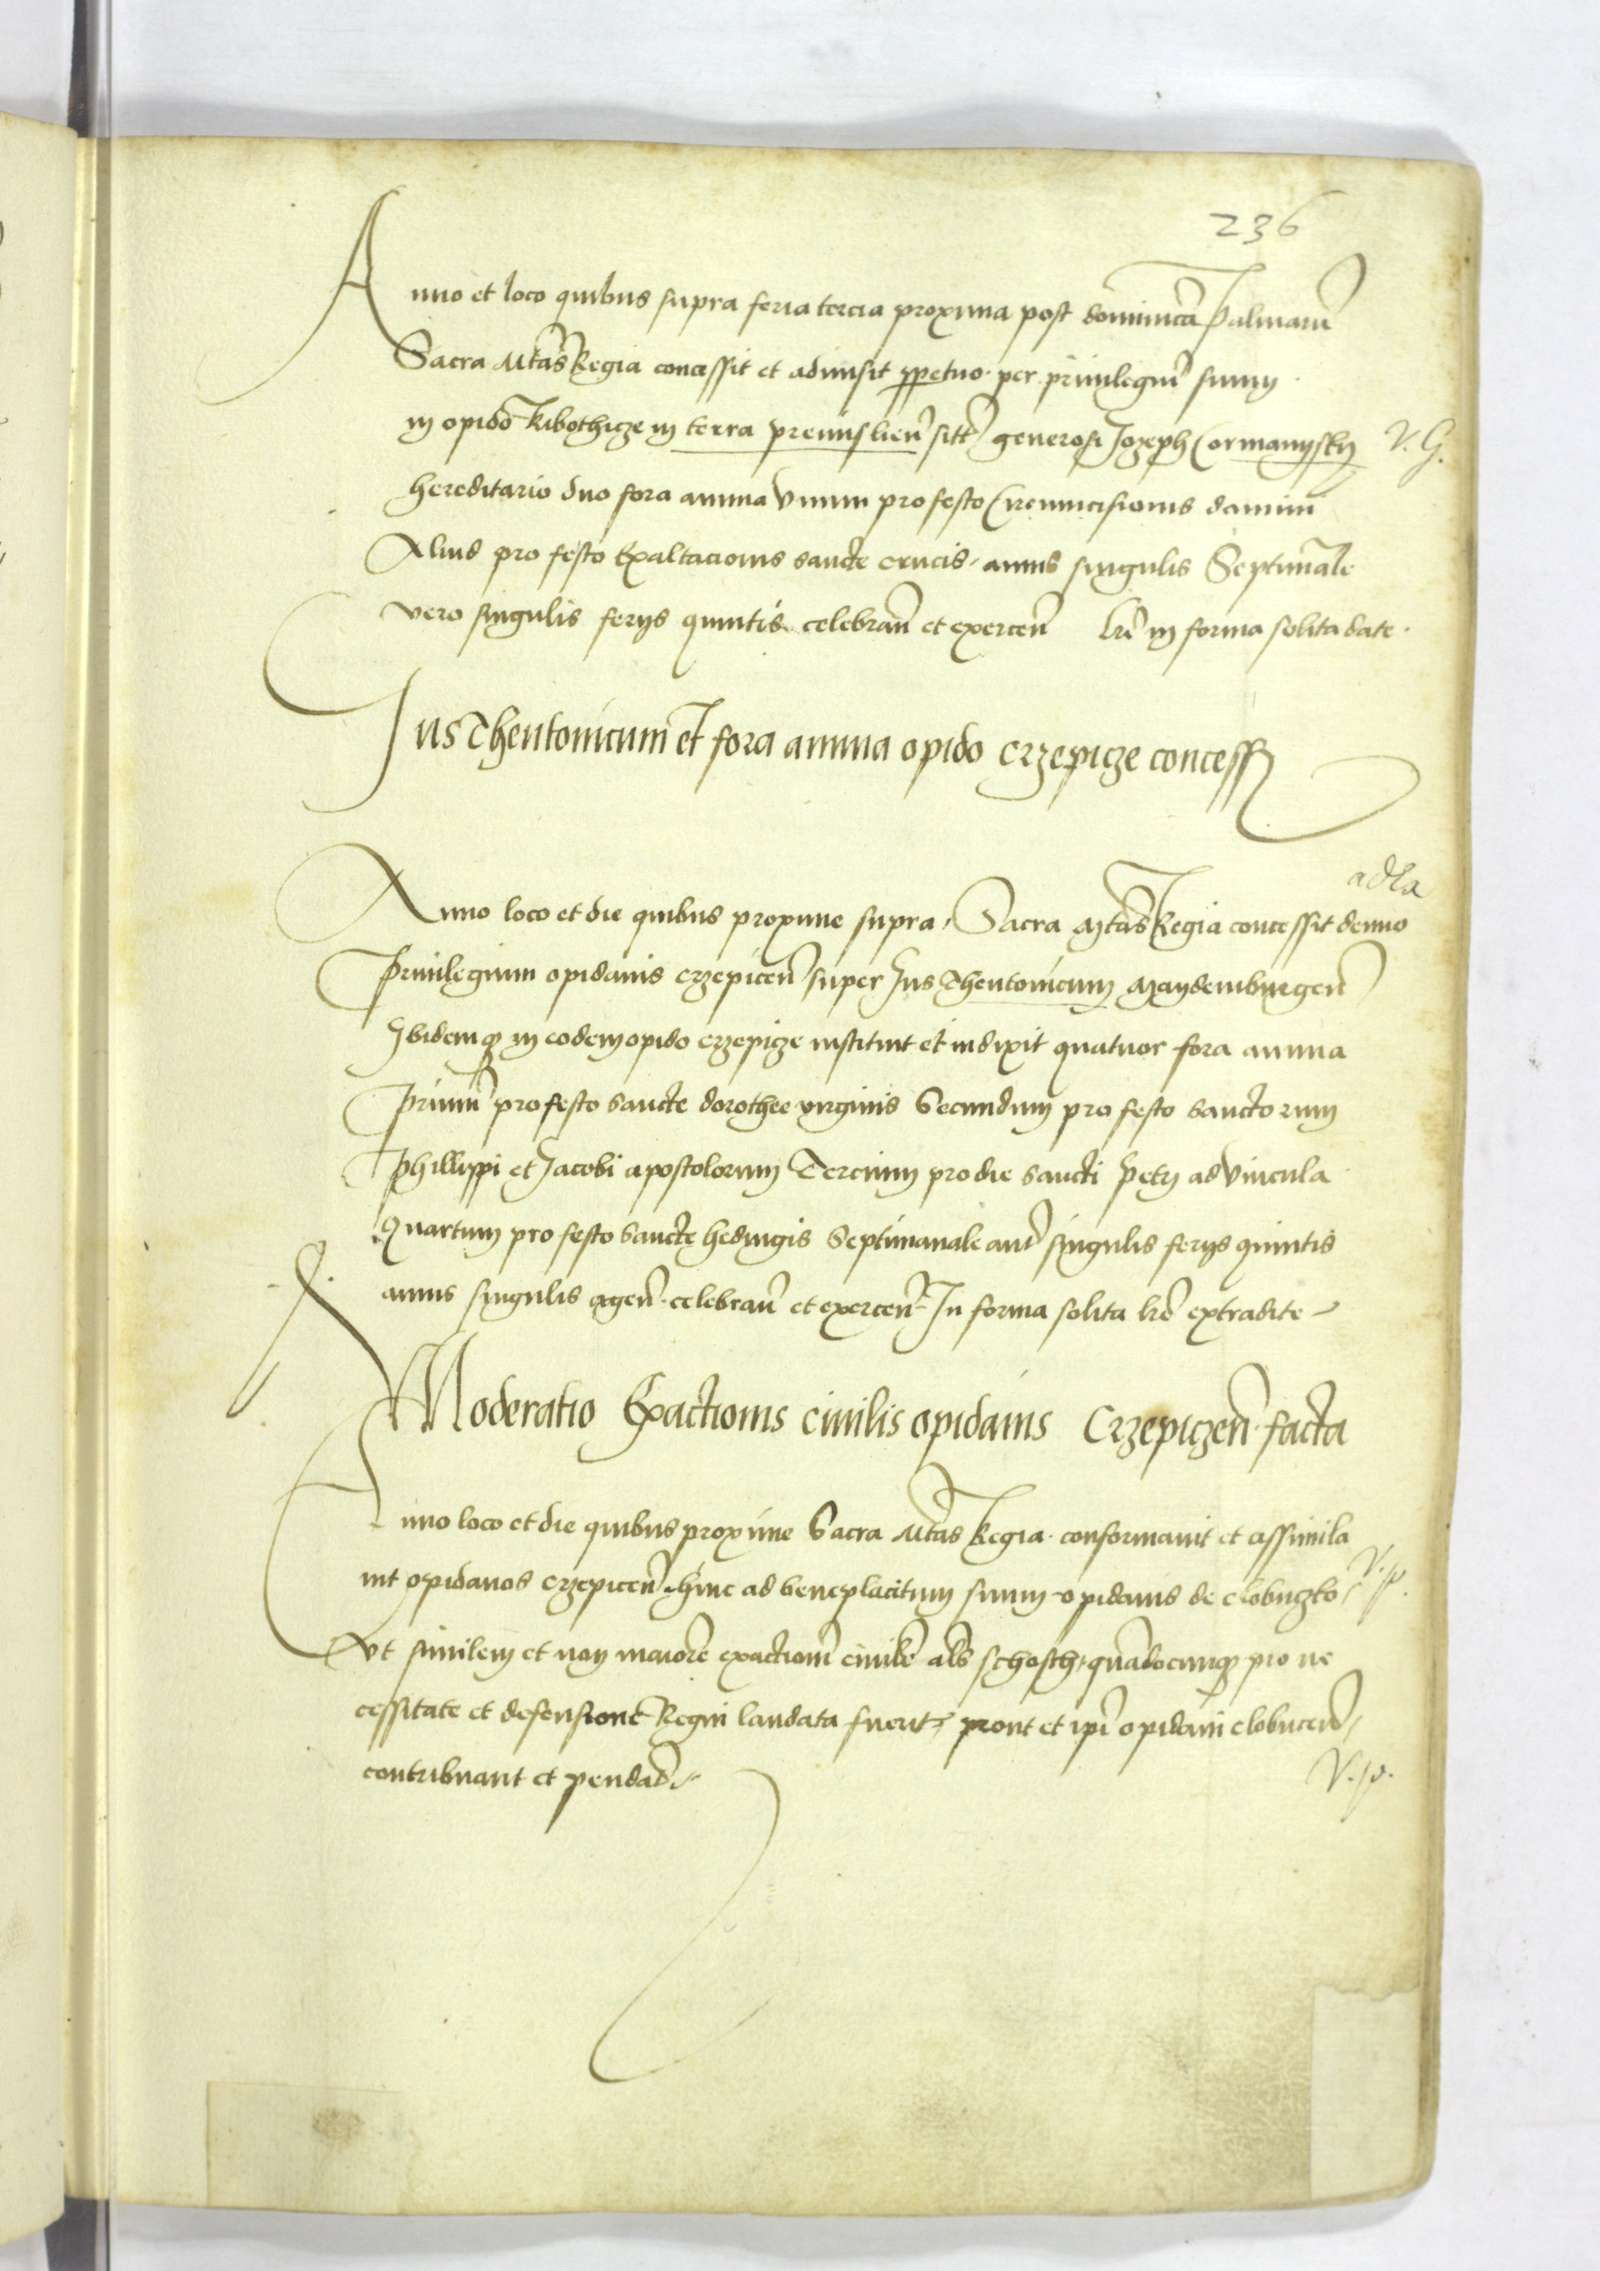 236
Anno et loco quibus supra feria tercia proxima post dominica Palmarum
Sacra Mtas Regia concessit et admisit ppetuo per privilegium suum
in opido Ribothicze in terra premislien sitt generosi Jozeph Cormanijskij V. G.
hereditario duo fora annua Unum pro festo Circumcisionis domini
Aliud pro festo Exaltacionis sancte crucis annis singulis Septimale
vero singulis ferijs quintis celebran et exercen lre in forma solita date.
Jus Theutonicum et fora annua opido Crzepicze concess
adla
Anno loco et die quibus proxime supra, Sacra Mtas Regia concessit denuo
Privilegium opidanis crzepicen super Jus Theutonicum Maydemburgen
Ibidemq in eodem opido crzepicze instituit et indixit quatuor fora annua
Primu pro festo sancte dorothee virginis Secundum pro festo sanctorum
Phillippi et Jacobi apostolorum Tercium pro die sancti Petrj ad Vincula
Quartum pro festo sancte heduigis Septimanale aut singulis ferijs quintis
annis singulis agen celebran et exercen In forma solita lre extradite
Moderatio Exactionis civilis opidanis Crzepiczen facta
Anno loco et die quibus proxime Sacra Mtas Regia conformavit et assimila
vit opidanos crzepicen hinc ad beneplacitum suum opidanis de clobuczko V. p.
Vt similem et non maiore exactione civile als schosch quadocunq pro ne
cessitate et defensione Regni laudata fuerit prout et ipi opidani clobucen
contribuant et pendat
V. p.